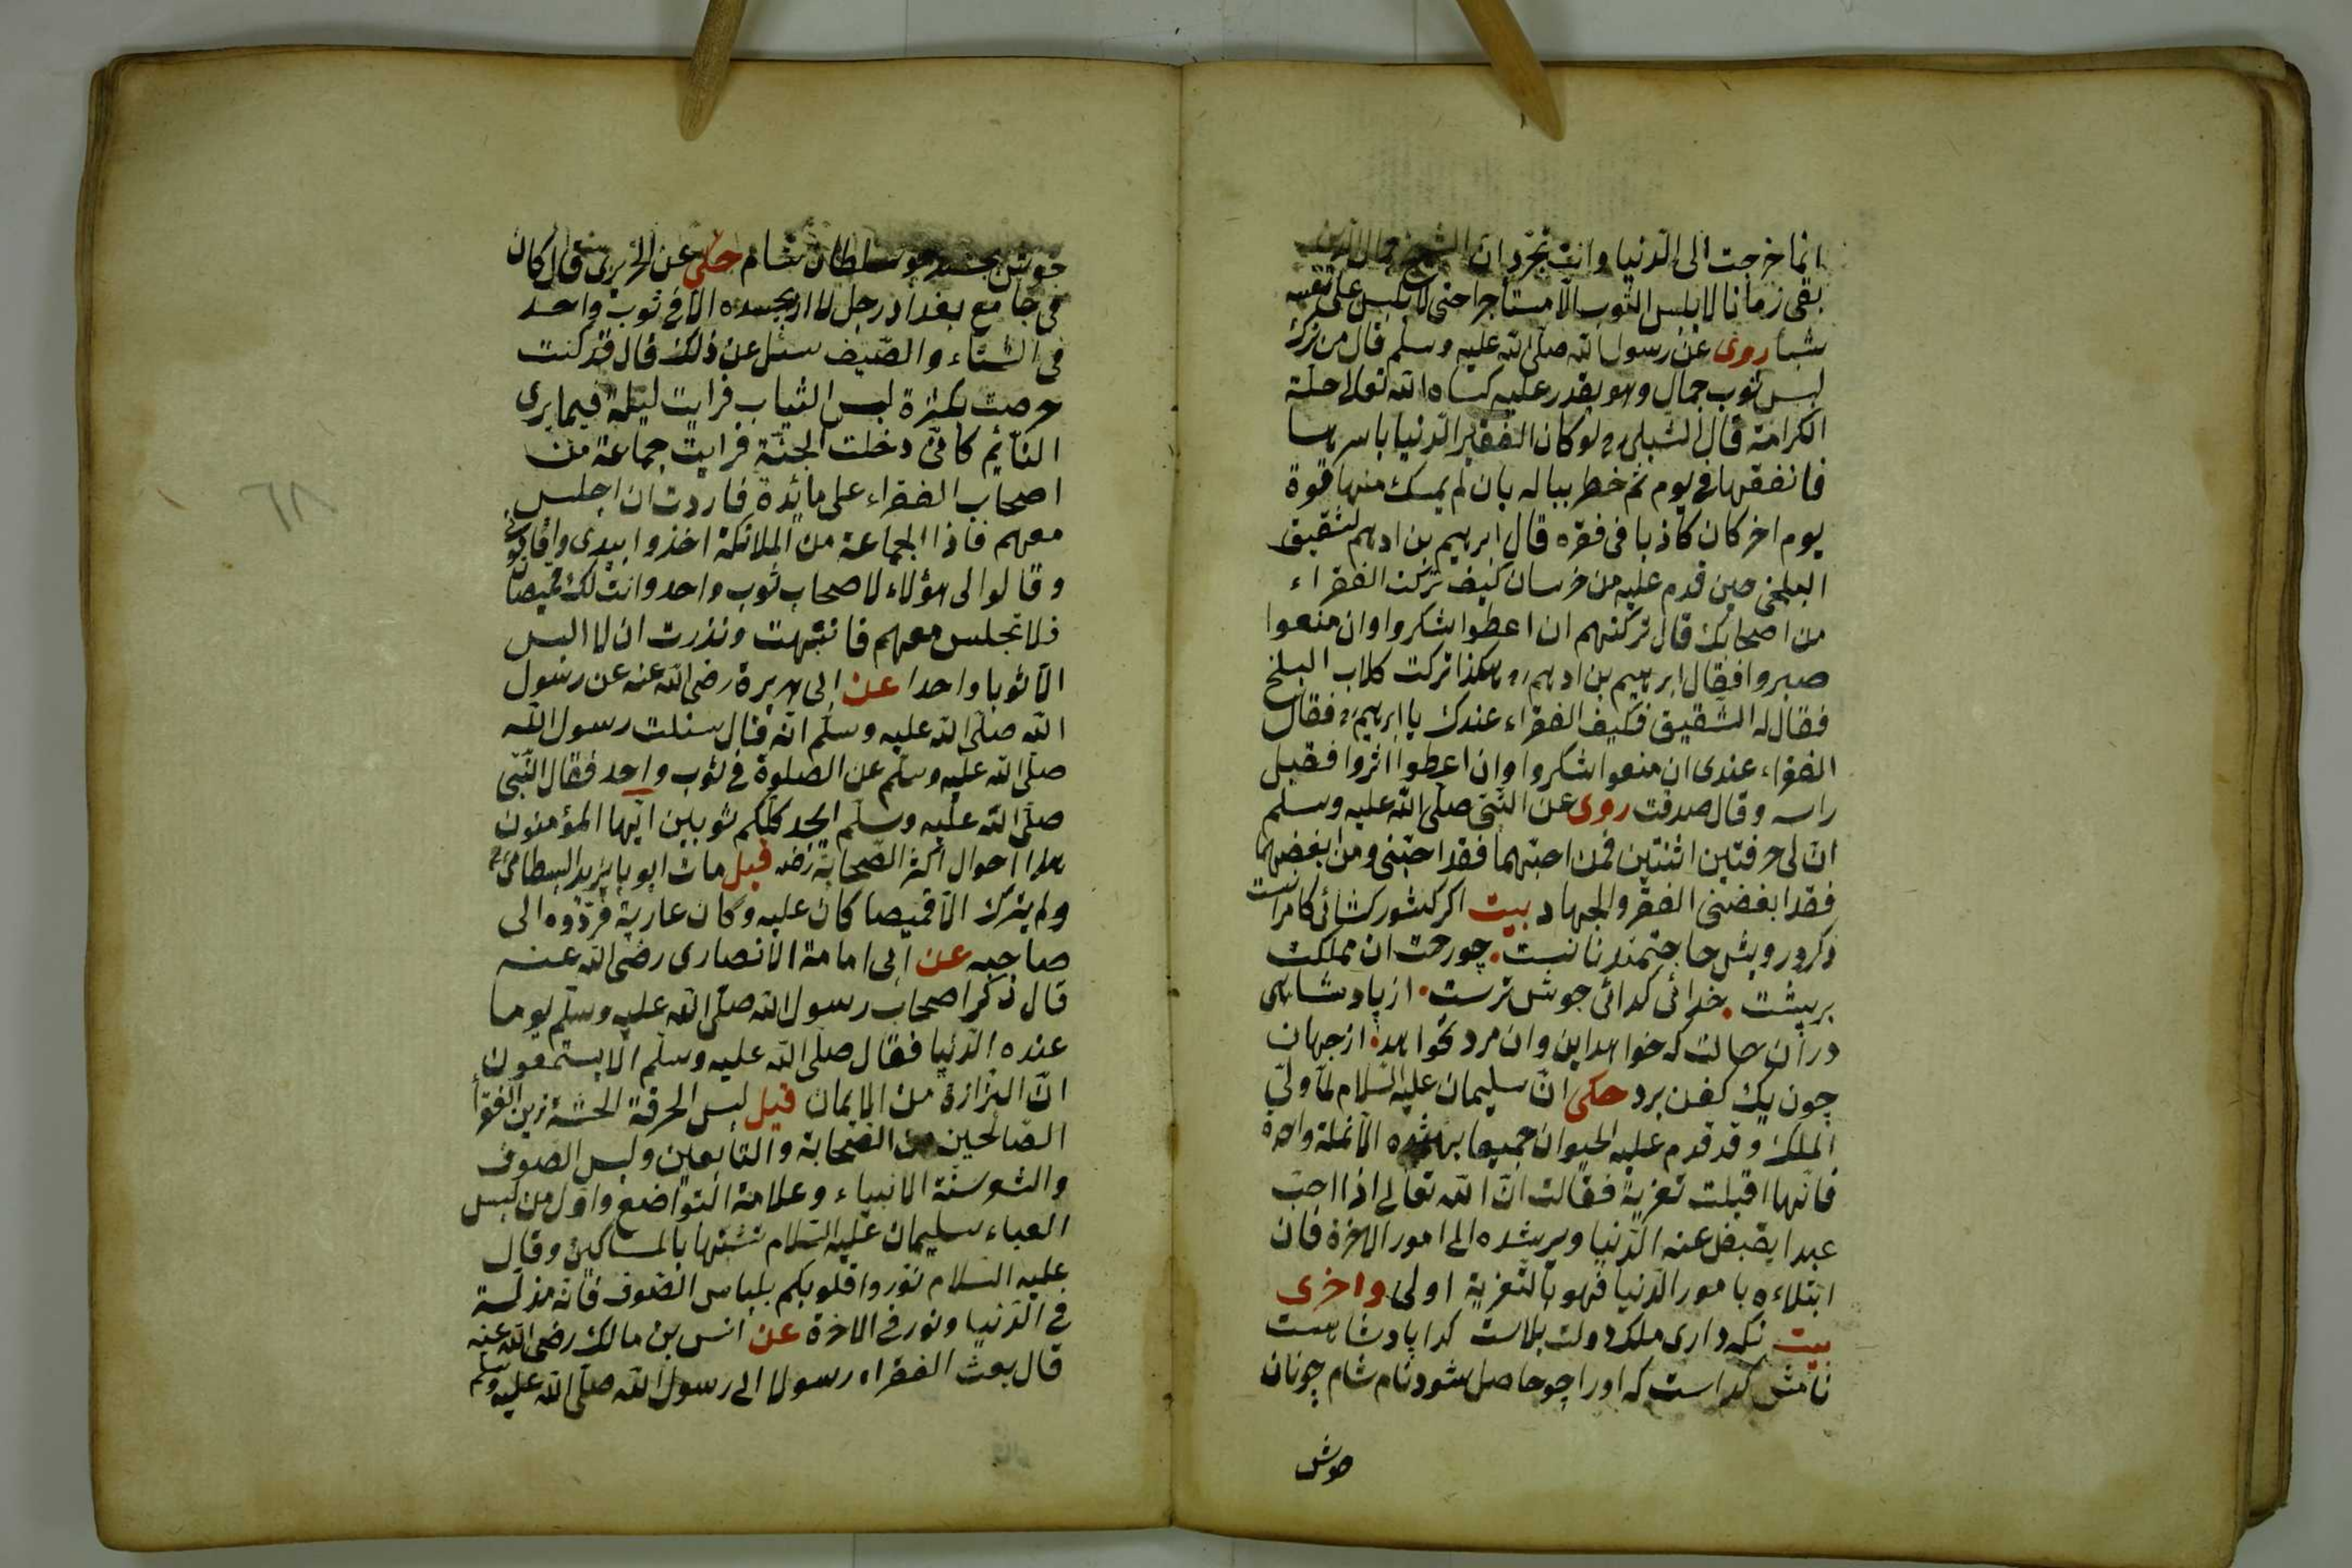 انما خرجت الى الدنيا وانت تجرد ان الشيخ جمال الدين
بقى زمانا لا يلبس الثوب الا مستأجرا حتى لا يلبس على نفسه
شيأ روى عن رسول الله صلى الله عليه وسلم قال من ترك
لبس ثوب جمال وهو يقدر عليه كساه الله تعالى حلة
الكرامة قال الشبلى لو كان الفقير الدنيا باسرها
فانفقها فى يوم ثم خطر بباله بان لم يمسك منها قوة
يوم اخر كان كاذبا فى فقره قال ابرهيم بن ادهم لشقيق
البلخى حين قدم عليه من خرسان كيف تركت الفقراء
من اصحابك قال تركتهم ان اعطوا شكروا وان منعوا
صبروا فقال ابرهيم بن ادهم هكذا تركت كلاب البلخ
فقال له الشقيق فكيف الفقراء عندك يا ابرهيم فقال
الفقراء عندى ان منعوا شكروا وان اعطوا اثروا فقبل
راسه وقال صدقت روى عن النبى صلى الله عليه وسلم
ان لى حرفتين اثنتين فمن احبهما فقد احبنى ومن ابغضهما
فقد ابغضنى الفقر والجهاد بيت اكر كشور كشائى كامرانست
وكر درويش حاجتمند نانست چو رحت ان مملكت
بربشت خدائى كدائى جوش ترست از پادشاهى
دران حالت كه خواهد اين وان مرد نخواهد از جهان
چون بيك كفن برد حكى ان سليمان عليه السلام لما ولى
الملك وقد قدم عليه الحيوان جميعا الا نملة واحدة
فانها اقبلت تعزية فقالت ان الله تعالى اذا احب
عبدا يقبض عنه الدنيا ويرشده الى امور الاخرة فان
ابتلاءه بامور الدنيا فهو بالتعزية اولى واخرى
بيت نكه دارى ملك دولت بلاست كدا پادشاهست
نامش كداست كه اورا چو حاصل شود نام شام چونان
جوش
جوش بحسبد چو سلطان شام حكى عن الحريرى قال كان
فى جامع بغداد رجل لا اربحسده الا فى ثوب واحد
فى الشتاء والصيف سئل عن ذلك قال قد كنت
حرصت بكثرة لبس الثياب فرايت ليلة فيما يرى
النائم كانى دخلت الجنة فرايت جماعة من
اصحاب الفقراء على مائدة فاردت ان اجلس
معهم فاذا الجماعة من الملائكة اخذوا بيدى واقامونى
وقالوا لى هؤلاء لاصحاب ثوب واحد وانت لك قميصان
فلا تجلس معهم فانتبهت ونذرت ان لا البس
الا ثوبا واحدا عن ابى هريرة رضى الله عنه عن رسول
الله صلى الله عليه وسلم انه قال سئلت رسول الله
صلى الله عليه وسلم عن الصلوة فى ثوب واحد فقال النبى
صلى الله عليه وسلم ايجد كلكم ثوبين ايها المؤمنون
هذا احوال اكثر الصحابة رضه قيل مات ابو بايزيد البسطامى
ولم يترك الا قميصا كان عليه وكان عارية فردوه الى
صاحبه عن ابى امامة الانصارى رضى الله عنه
قال ذكر اصحاب رسول الله صلى الله عليه وسلم يوما
عنده الدنيا فقال صلى الله عليه وسلم الا يستمعون
ان البزازة من الايمان قيل لبس الخرقة الخشنة زين الفقرأ
الصالحين من الصحابة والتابعين ولبس الصوف
والشعر سنة الانبياء وعلامة التواضع واول من لبس
العباء سليمان عليه السلام تشبها بالمساكين وقال
عليه السلام نوروا قلوبكم بلباس الصوف فانه مذلة
فى الدنيا ونور فى الاخرة عن انس بن مالك رضى الله عنه
قال بعث الفقراء رسولا الى رسول الله صلى الله عليه وسلم
٦٨